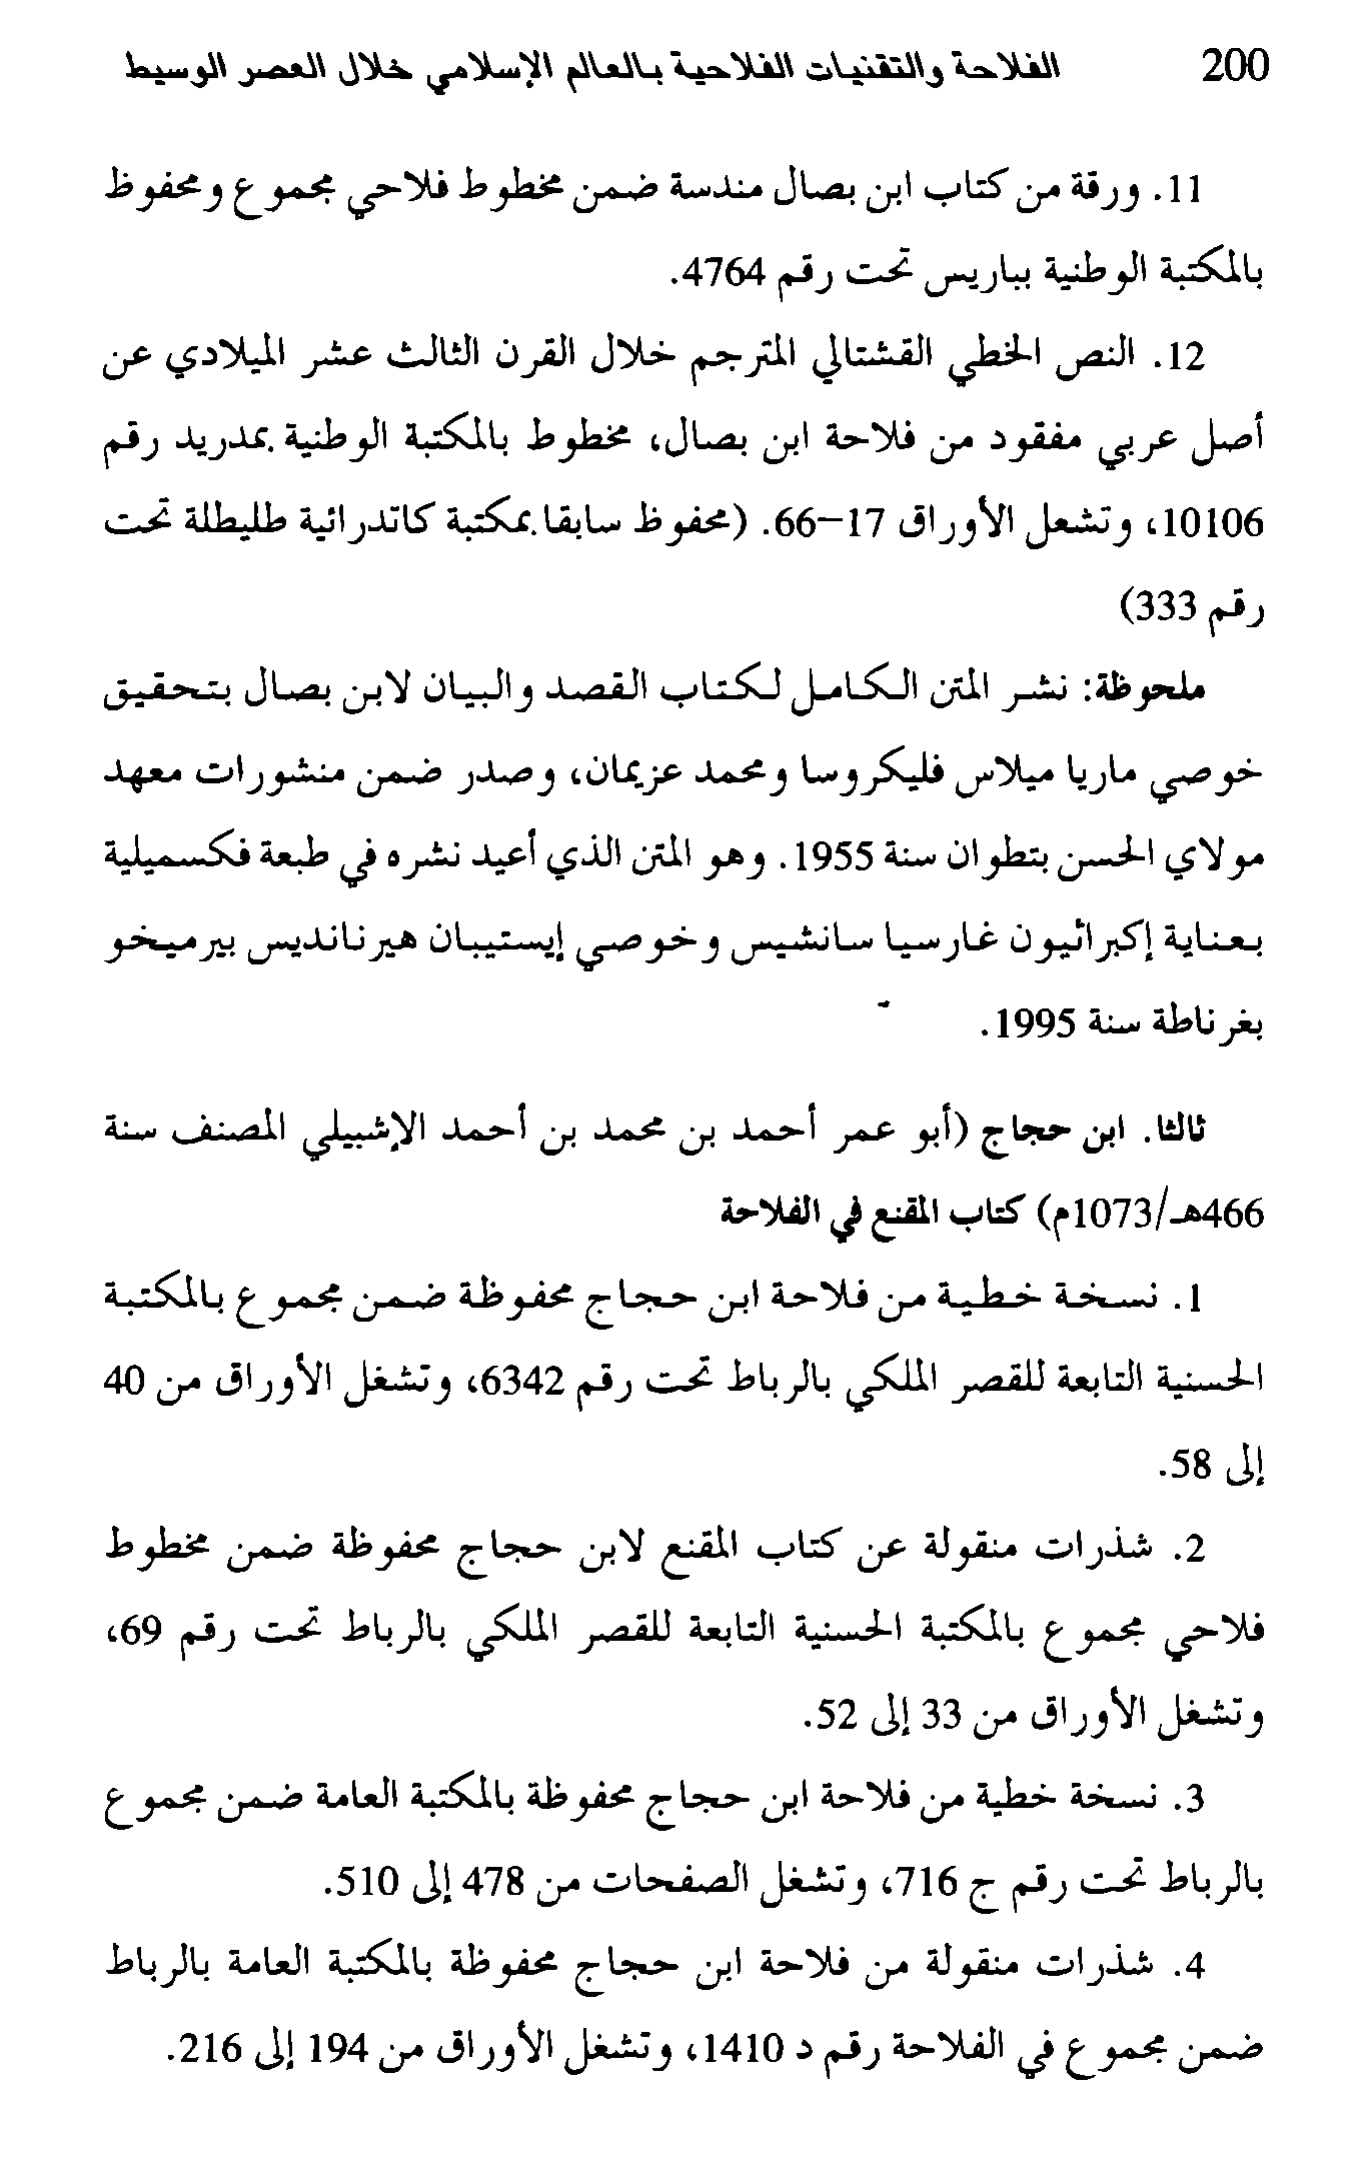 200 الفلاحة والتقنيات الفلاحية بالعالم الإسلامي خلال العصر الوسيط
11. ورقة من كتاب ابن بصال مندسة ضمن مخطوط فلاحي مجموع ومحفوظ
بالمكتبة الوطنية بباريس تحت رقم 4764.
12. النص الخطي القشتالي المترجم خلال القرن الثالث عشر الميلادي عن
أصل عربي مفقود من فلاحة ابن بصال، مخطوط بالمكتبة الوطنية بمدريد رقم
10106، وتشعل الأوراق 17–66. (محفوظ سابقا بمكتبة كاتدرائية طليطلة تحت
رقم 333)
ملحوظة: نشر المتن الكامل لكتاب القصد والبيان لابن بصال بتحقيق
خوصي ماريا ميلاس فليكروسا ومحمد عزيمان، وصدر ضمن منشورات معهد
مولاي الحسن بتطوان سنة 1955. وهو المتن الذي أعيد نشره في طبعة فكسميلية
بعناية إكبرائيون غارسيا سانشيس وخوصي إيستيبان هيرنانديس بيرميخو
بغرناطة سنة 1995.
ثالثا. ابن حجاج (أبو عمر أحمد بن محمد بن أحمد الإشبيلي المصنف سنة
466هـ/1073م) كتاب المقنع في الفلاحة
1. نسخة خطية من فلاحة ابن حجاج محفوظة ضمن مجموع بالمكتبة
الحسنية التابعة للقصر الملكي بالرباط تحت رقم 6342، وتشغل الأوراق من 40
إلى 58.
2. شذرات منقولة عن كتاب المقنع لابن حجاج محفوظة ضمن مخطوط
فلاحي مجموع بالمكتبة الحسنية التابعة للقصر الملكي بالرباط تحت رقم 69،
وتشغل الأوراق من 33 إلى 52.
3. نسخة خطية من فلاحة ابن حجاج محفوظة بالمكتبة العامة ضمن مجموع
بالرباط تحت رقم ج 716، وتشغل الصفحات من 478 إلى 510.
4. شذرات منقولة من فلاحة ابن حجاج محفوظة بالمكتبة العامة بالرباط
ضمن مجموع في الفلاحة رقم د 1410، وتشغل الأوراق من 194 إلى 216.